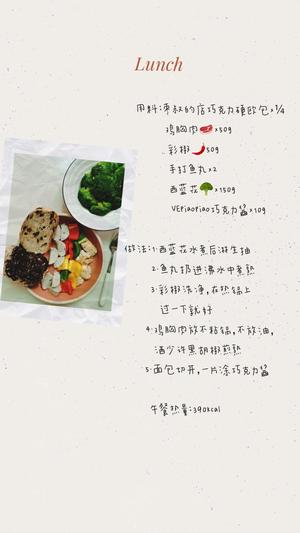 Lunch
用料:枣叔的店巧克力硬欧包×¼
鸡胸肉🥩×50g
彩椒🌶️50g
手打鱼丸×2
西蓝花🥦×150g
VEpiaopiao巧克力酱×10g
做法:1·西蓝花水煮后淋生抽
2·鱼丸扔进沸水中煮熟
3·彩椒洗净,在热锅上
过一下就好
4·鸡胸肉放不粘锅,不放油,
洒少许黑胡椒煎熟
5·面包切开,一片涂巧克力酱
午餐热量:390kcal